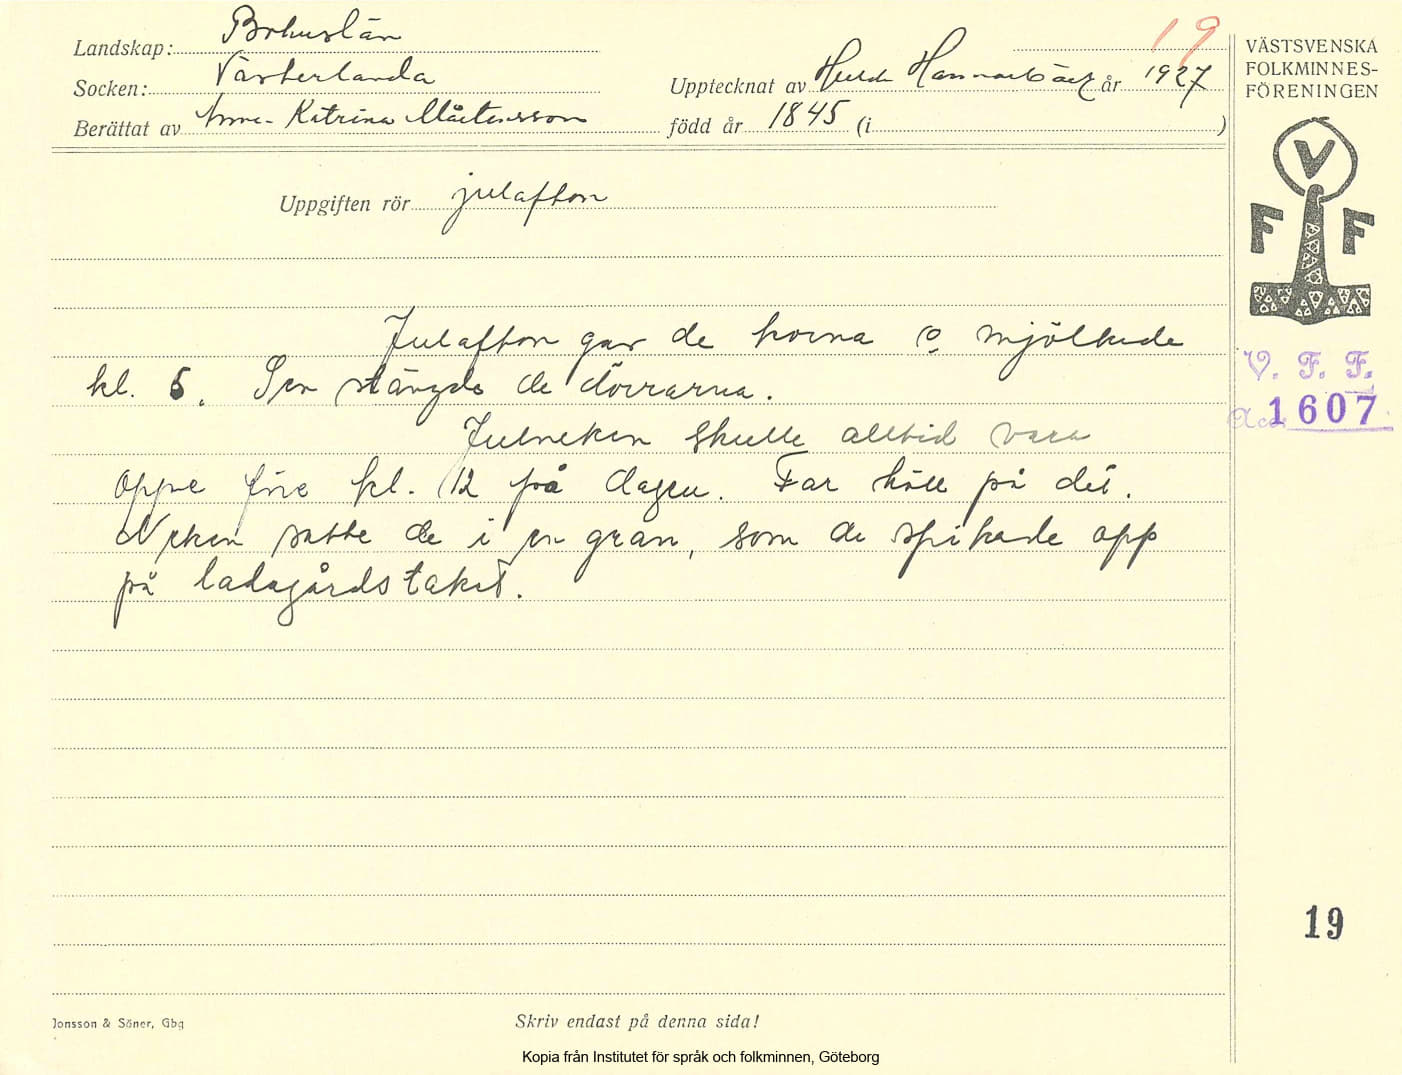 19
Landskap: Bohuslän
Socken: Västerlanda
Upptecknat av Hulda Hammarbäck år 1927
Berättat av Anna-Katrina Mårtensson född år 1845 (i )
Uppgiften rör julafton
Julafton gav de korna o mjölkade
kl. 5. Sen stängde de dörrarna.
Julneken skulle alltid vara
oppe före kl. 12 på dagen. Far höll på det.
Neken satte de i en gran, som de spikade opp
på ladugårdstaket.
VÄSTSVENSKA
FOLKMINNES-
FÖRENINGEN
V
F F
V. F. F.
Acc. 1607
19
Jonsson & Söner, Gbg
Skriv endast på denna sida!
Kopia från Institutet för språk och folkminnen, Göteborg